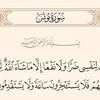 سُورَةُ يُونُسَ
بِسْمِ اللَّهِ الرَّحْمَٰنِ الرَّحِيمِ
لِنَفْسِي ضَرًّا وَلَا نَفْعًا إِلَّا مَا شَاءَ اللَّهُ
فَلَا يَسْتَأْخِرُونَ سَاعَةً وَلَا يَسْتَقْدِمُونَ